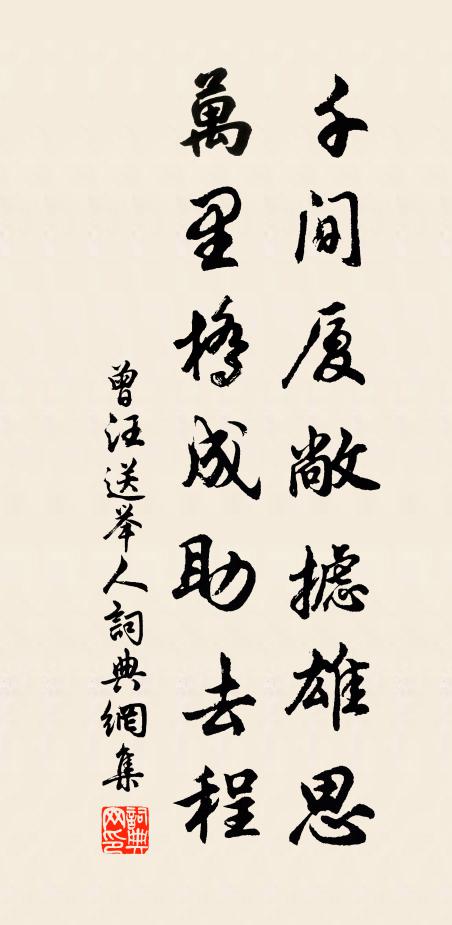 千间厦敞摅雄思
萬里橋成助去程
曾汪送举人詞典網集
詞典网印